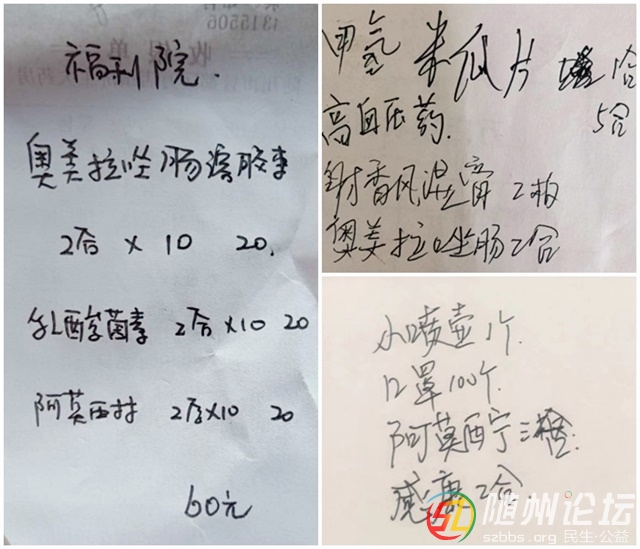 4315506
福利院.
奥美拉唑肠溶胶束
2合 x 10 20.
乳酸菌素 2合x10 20
阿莫西林 2合x10 20
60元
米瓜片 1合
高血压药. 5合
射香风湿膏 2板
奥美拉唑肠2合
小喷壶1个.
口罩100个.
阿莫西宁三
感康2合.
随州论坛
szbbs.org 民生·公益